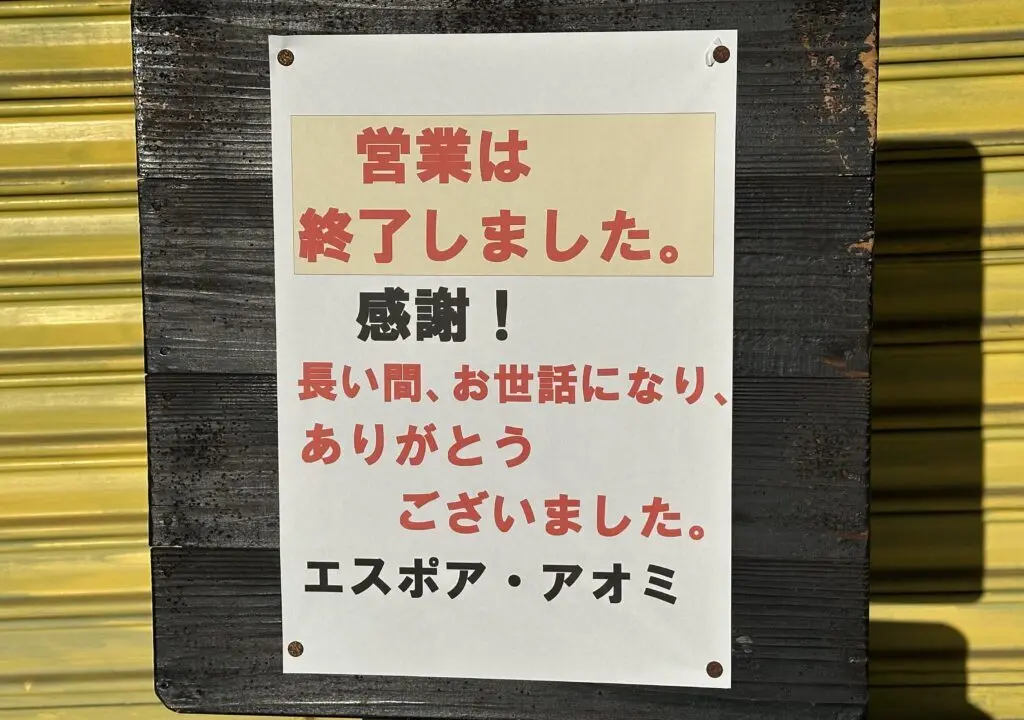 営業は
終了しました。
感謝！
長い間、お世話になり、
ありがとう
ございました。
エスポア・アオミ